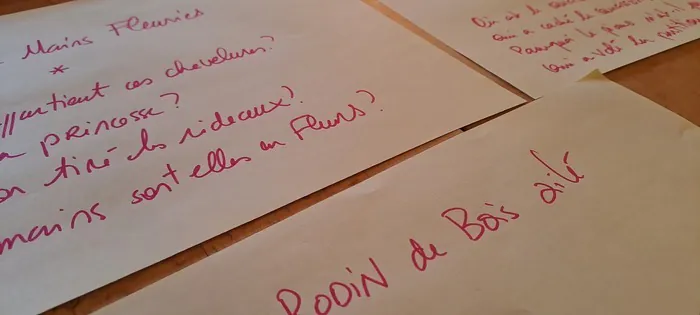 Mains Fleuries
*
appartient ces chevelures?
princesse?
tiré les rideaux?
mains sont elles en Fleurs?
Où est le
qui a caché le
Pourquoi le
qui a volé les
RODIN de Bois ailé